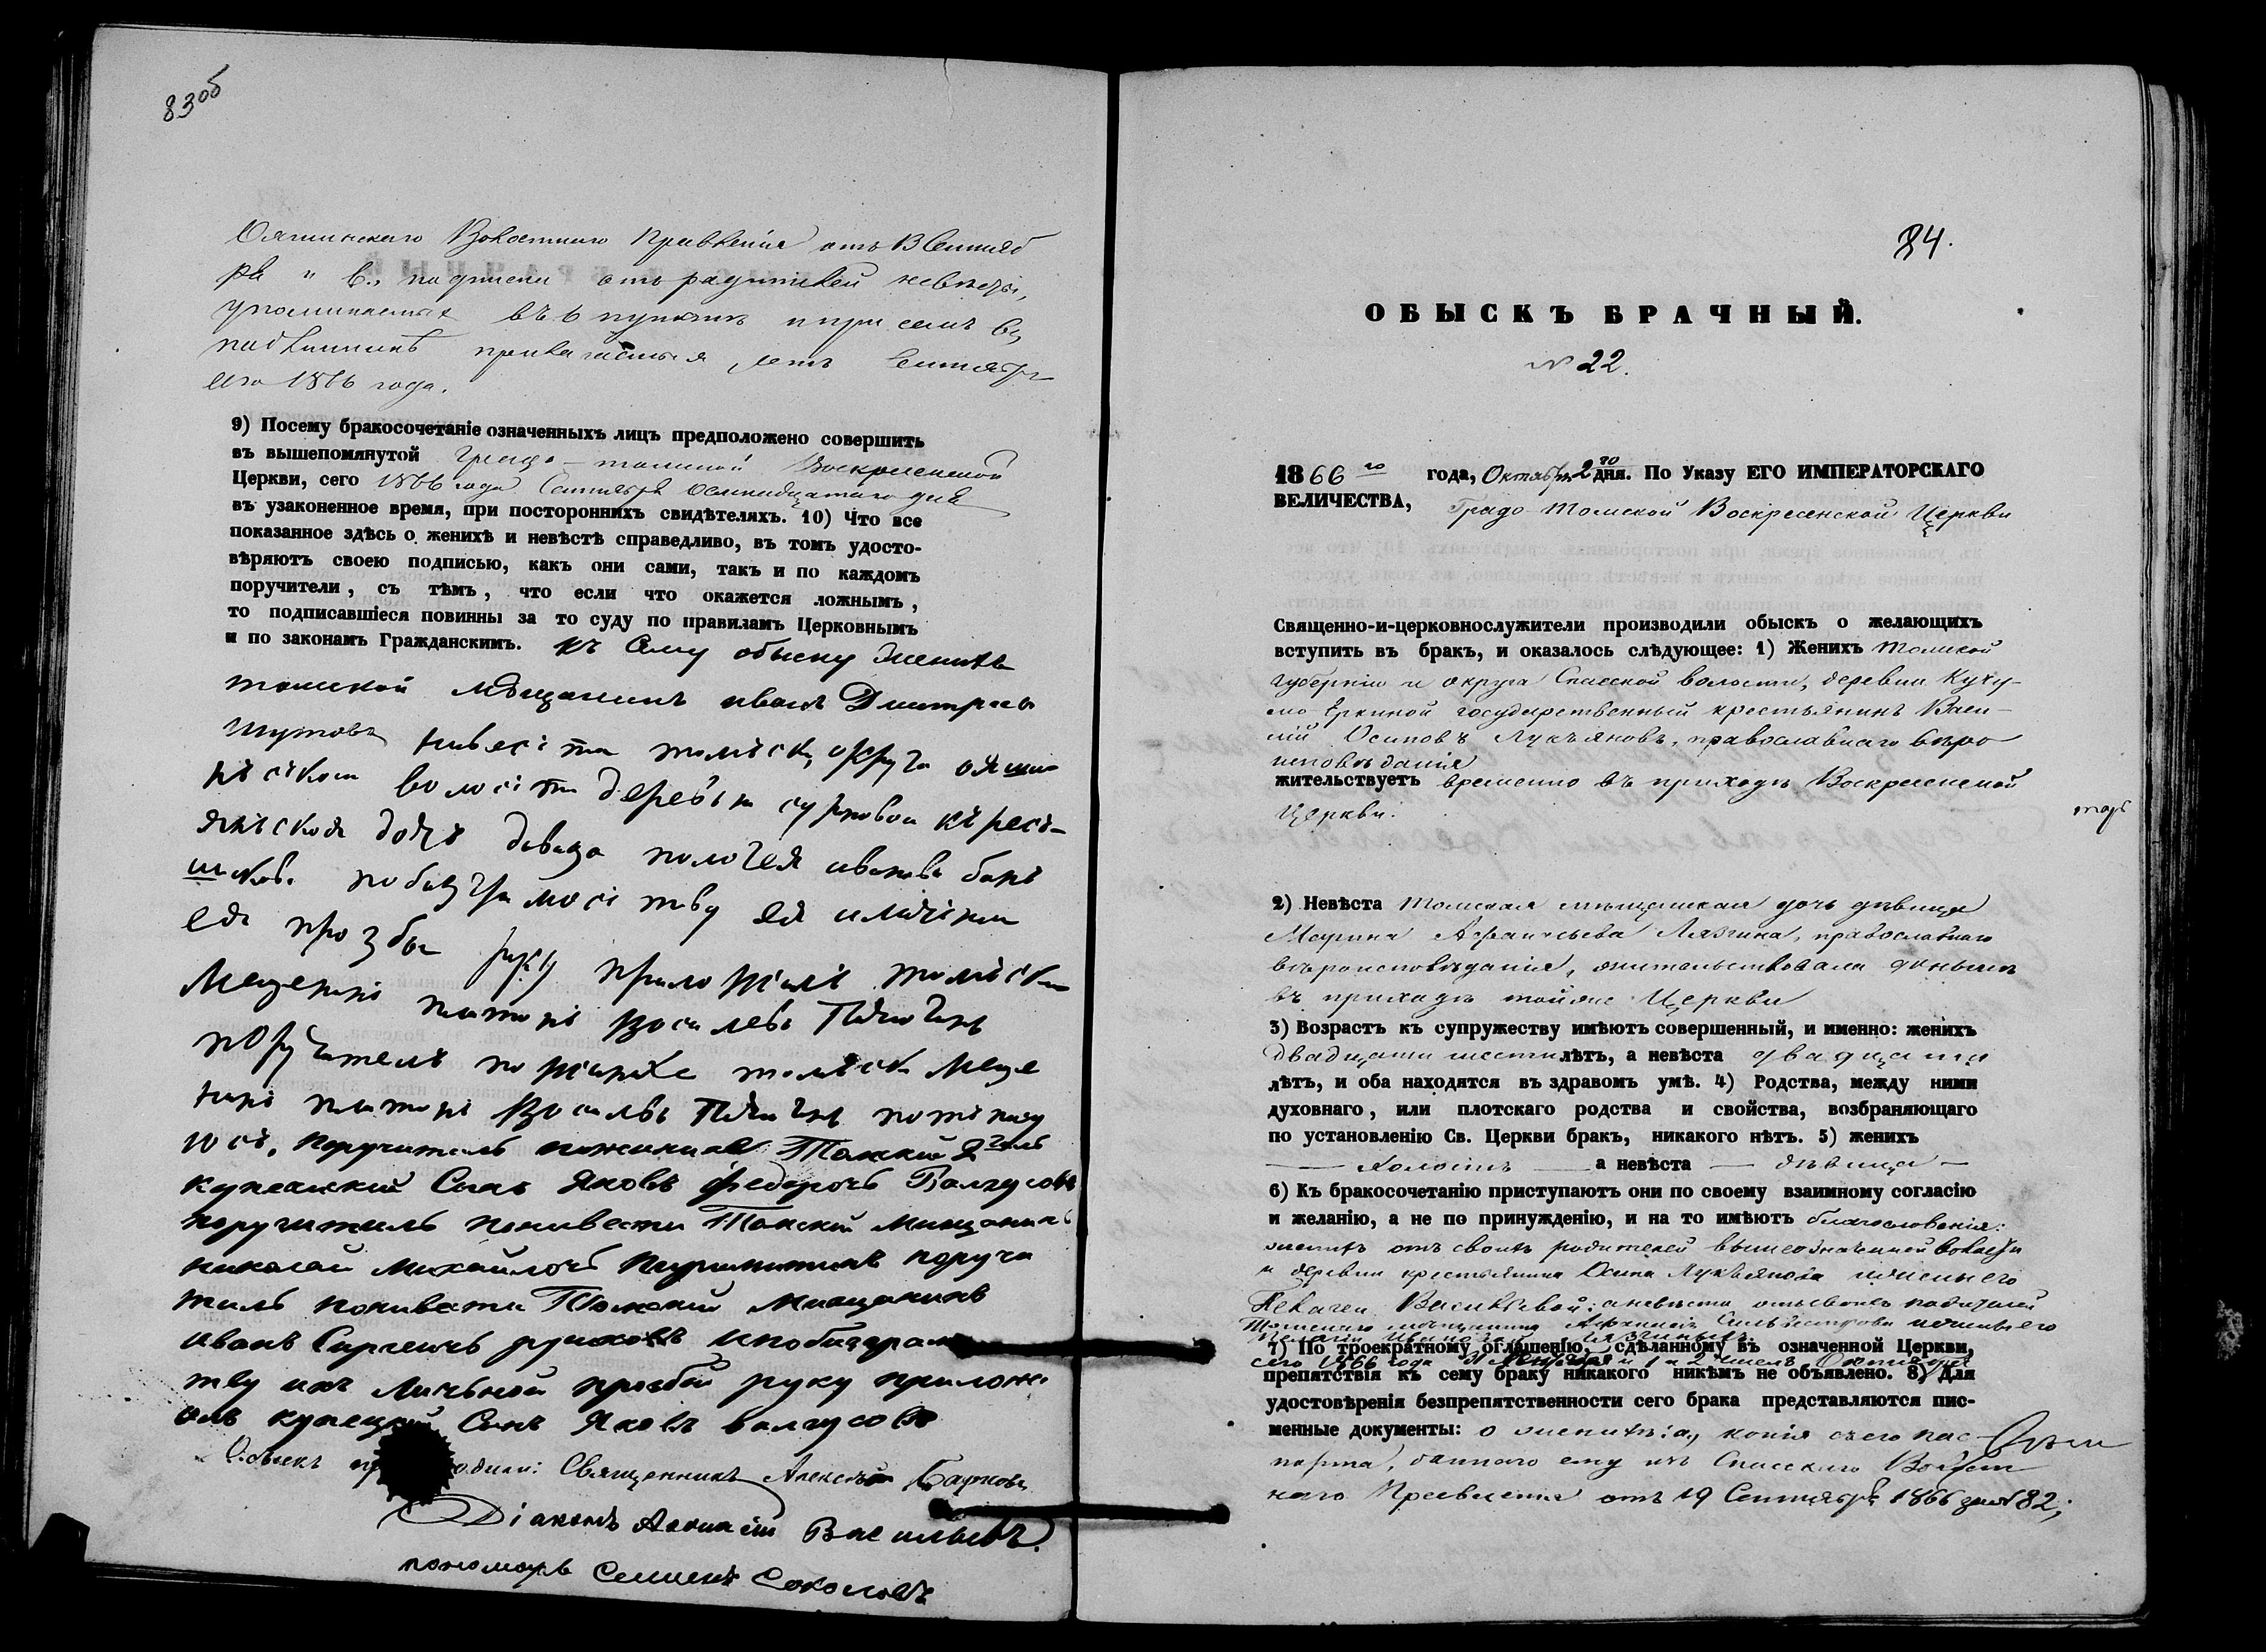 83об
Ояшинскаго Волостнаго Правленія отъ 13 Сентяб
ря " в., подписки отъ родителей невѣсты,
упоминаемых въ 6 пунктѣ и при семъ въ
подлинникѣ прилагаемыя, отъ Сентября
1866 года.
9) Посему бракосочетаніе означенныхъ лицъ предположено совершить
въ вышепомянутой Градо-Томской Воскресенской
Церкви, сего 1866 года Сентября восемнадцатаго дня
въ узаконенное время, при постороннихъ свидѣтеляхъ. 10) Что все
показанное здѣсь о женихѣ и невѣстѣ справедливо, въ томъ удосто-
вѣряютъ своею подписью, какъ они сами, такъ и по каждомъ
поручители, съ тѣмъ, что если что окажется ложнымъ,
то подписавшіеся повинны за то суду по правиламъ Церковнымъ
и по законамъ Гражданскимъ. Къ сему обыску женихъ
томской мѣщанинъ иванъ Дмитревъ
Шутовъ невеста томскъ округа ояши
нской волости деревни
янская дочь девица пологея иванова
по безграмоству ея и личной
ея прозбы руку приложилъ томски
Мещенинъ Василевъ
поручитель по женихе томски Меще
нинъ Василевъ подпису
юсь, Поручитель по женихе Томский 2 гиль
купеческий Сынъ Яковъ Федорочъ Валгусовъ
поручитель поневести Томский Мищанинъ
николай михайлочъ поручи
тиль поневести Томский Мищанинъ
иванъ Сергеичъ и по безграмо
тву ихъ личьной прозбы руку приложи
лъ купецкий Сынъ Яковъ валгусовъ
Обыскъ производили: Священникъ Алексѣй
Діаконъ Васильевъ.
пономарь Семенъ Соколовъ
84.
ОБЫСКЪ БРАЧНЫЙ.
№ 22.
1866 го года, Октября 2 го дня. По Указу ЕГО ИМПЕРАТОРСКАГО
ВЕЛИЧЕСТВА, Градо-Томской Воскресенской Церкви
Священно-и-церковнослужители производили обыскъ о желающихъ
вступить въ бракъ, и оказалось слѣдующее: 1) Женихъ Томской
губерніи и округа Спасской волости, деревни Кучу-
мо-Еркиной государственный крестьянинъ Васи-
лій Осиповъ Лукьяновъ, православнаго вѣро
исповѣданія
жительствуетъ временно въ приходѣ Воскресенской
Церкви.
2) Невѣста Томская мѣщанская дочь дѣвица
Марина Афанасьева Лязгина, православнаго
вѣроисповѣданія, жительствовала донынѣ
въ приходѣ тойже Церкви
3) Возрастъ къ супружеству имѣютъ совершенный, и именно: женихъ
двадцати шести лѣтъ, а невѣста двадцати
лѣтъ, и оба находятся въ здравомъ умѣ. 4) Родства, между ними
духовнаго, или плотскаго родства и свойства, возбраняющаго
по установленію Св. Церкви бракъ, никакого нѣтъ. 5) женихъ
— холостъ — а невѣста — дѣвица —
6) Къ бракосочетанію приступаютъ они по своему взаимному согласію
и желанію, а не по принужденію, и на то имѣютъ благословенія:
женихъ отъ своихъ родителей вышеозначенной волости
и деревни крестьянина Осипа Лукьянова и жены его
Пелагеи Васильевой; а невѣста отъ своихъ родителей
Томскаго мѣщанина Афанасія Сильвестрова и жены его
Пелагіи Ивановой Лязгиныхъ.
7) По троекратному оглашенію, сдѣланному въ означенной Церкви,
сего 1866 года и 1 и 2 чиселъ Октября
препятствія къ сему браку никакого никѣмъ не объявлено. 8) Для
удостовѣренія безпрепятственности сего брака представляются пис-
менные документы: о женихѣ: а., копія съ его пас-
порта, даннаго ему изъ Спасскаго Волост
наго Правленія отъ 19 Сентября 1866 за № 82;